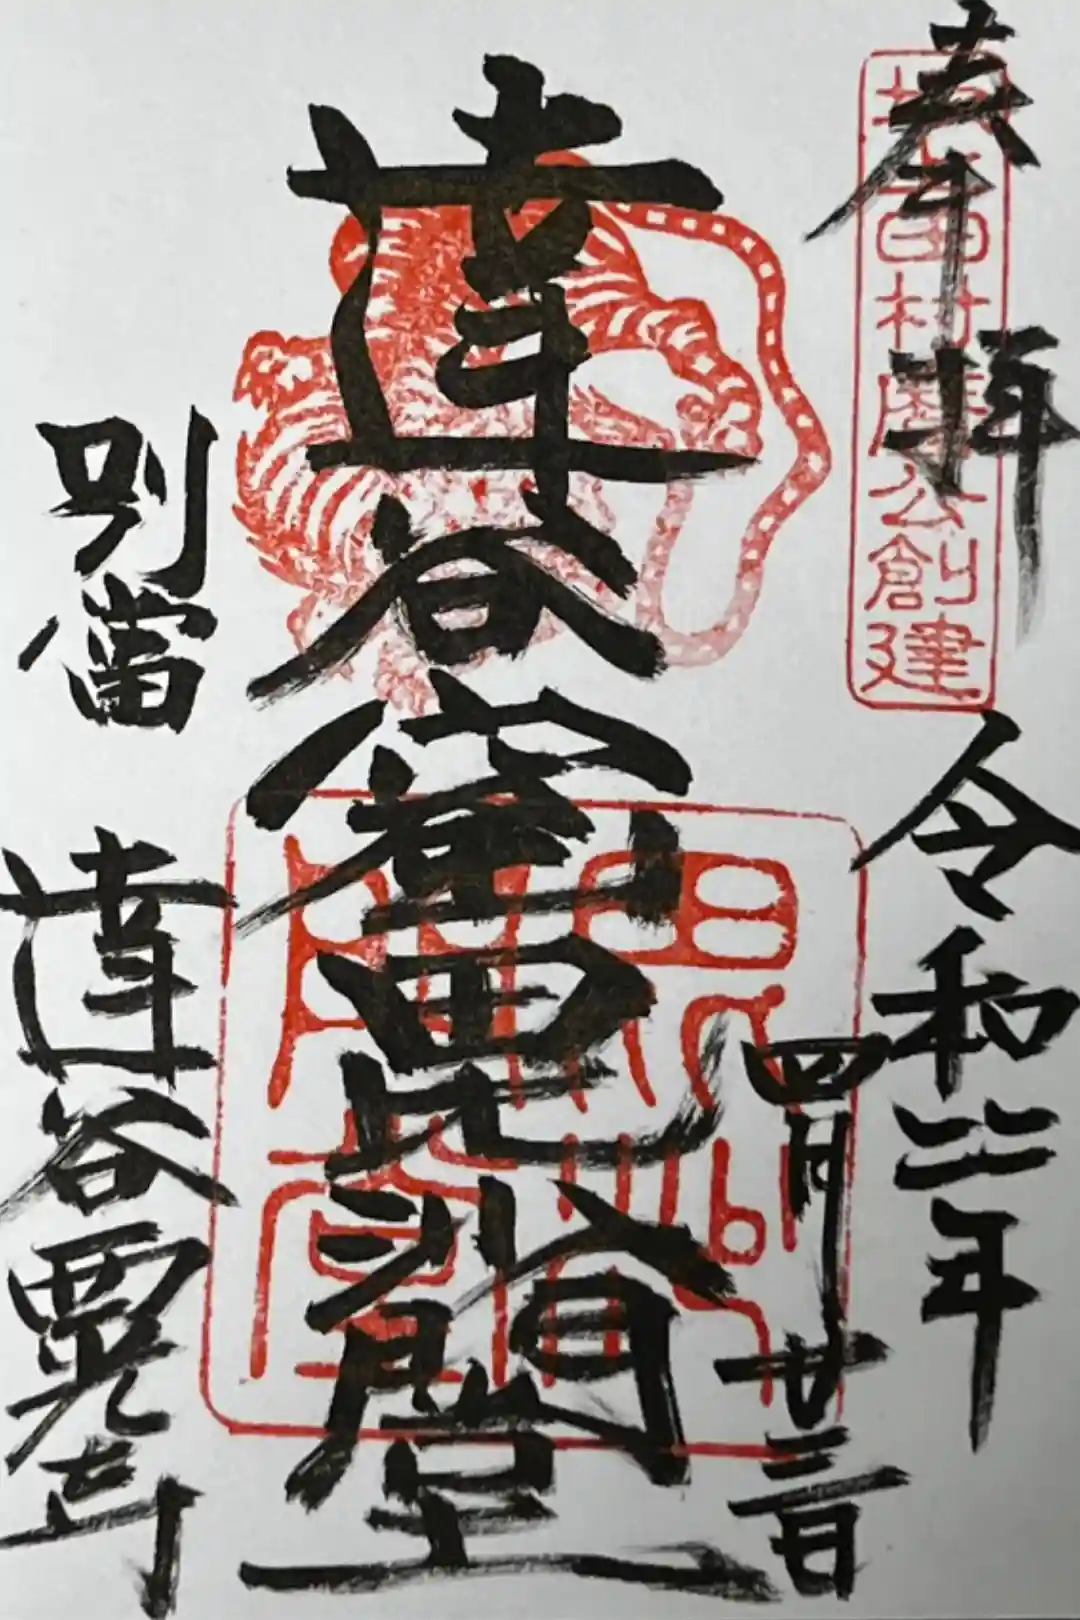 奉拝
坂上田村麿公創建
令和二年
四月廿三日
達谷窟毘沙門堂
別當
達谷西光寺